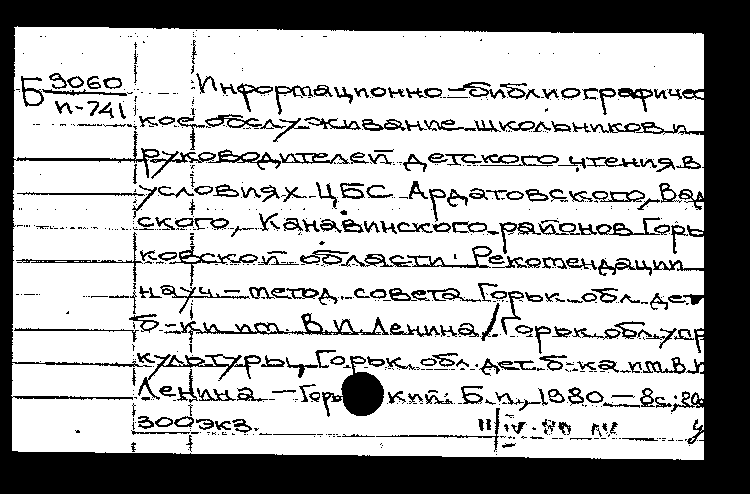 Б 9060/п-741
Информационно-библиографичес
кое обслуживание школьников и
руководителей детского чтения в
условиях ЦБС Ардатовского, Вад
ского, Канавинского районов Горь
ковской области: Рекомендации
науч.-метод. совета Горьк. обл. дет
б-ки им. В.И. Ленина/Горьк. обл. упр
культуры, Горьк. обл. дет. б-ка им. В.И
Ленина. — Горь кий: Б.и., 1980. — 8с.; 20
300экз.